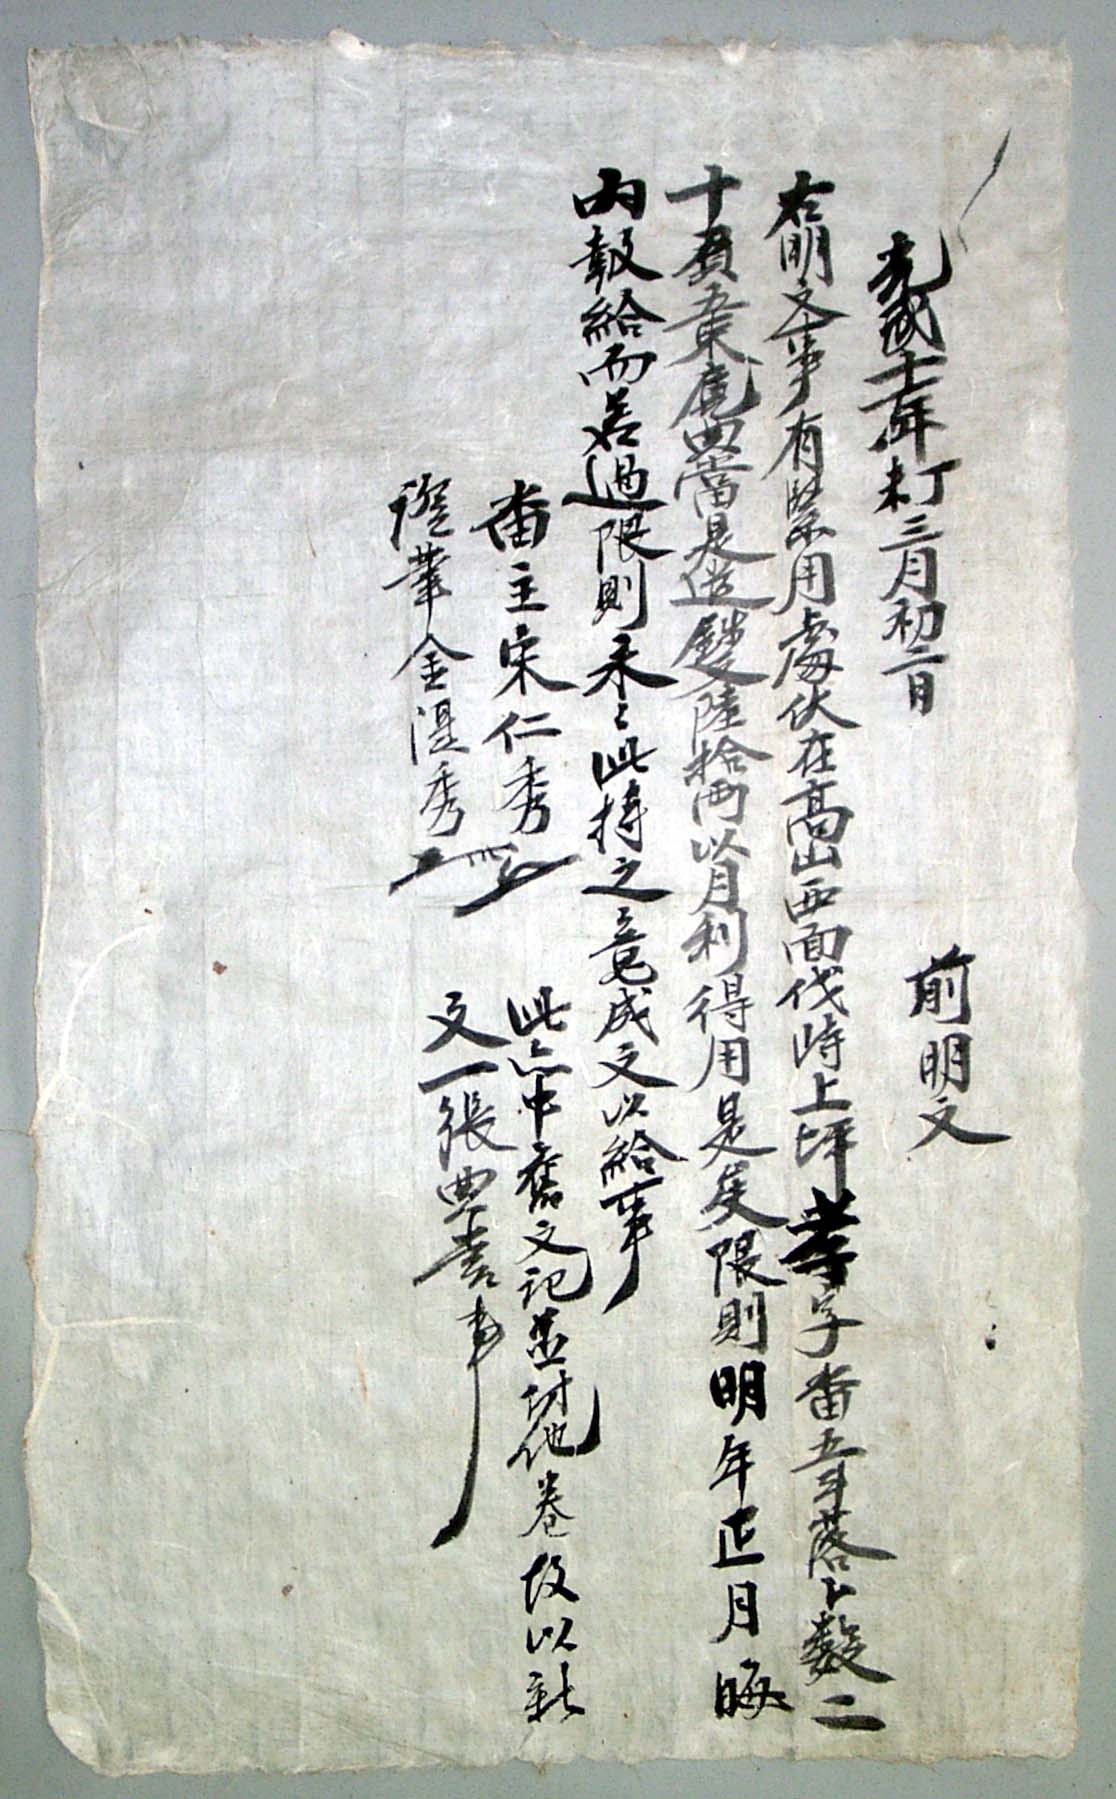 光武十一年丁未三月初二日
前明文
右明文事有緊用處伏在高山西面伐時上坪孝字畓五斗落卜數二
十負五束庫典當是遣錢文陸拾兩以月利得用是矣限則明年正月晦
內報給而若過限則永永此持之意成文以給事
畓主宋仁秀
證筆金湜秀
此亦中舊文記並付他卷故以新
文一張典當事